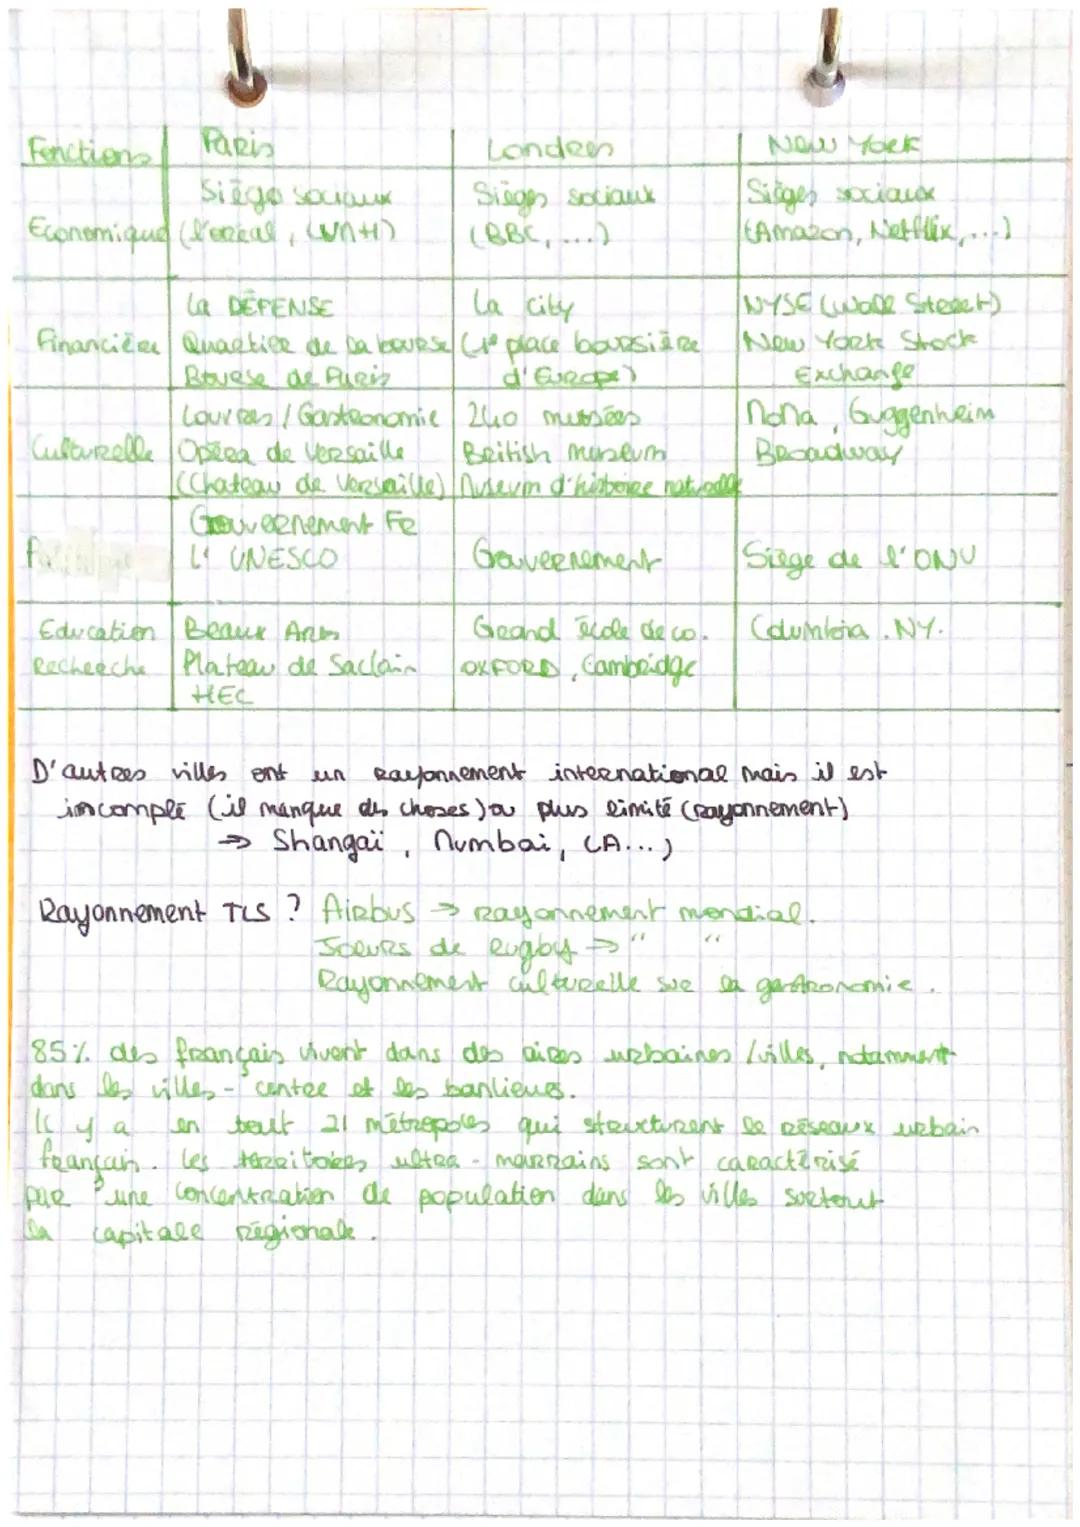 Fonctions Paris Londres New York
Siège sociaux Sièges sociaux Sièges sociaux
Economique (l'oréal, LVMH) (BBC, ...) (Amazon, Netflix, ...)
La DÉFENSE La City NYSE (Wall Street)
Financière Quartier de la bourse (1e place boursière New York Stock
Bourse de Paris d'Europe) Exchange
Louvres / Gastronomie 240 mussées MoMa, Guggenheim
Culturelle Opéra de Versaille British museum Broadway
(Chateau de Versaille) Museum d'histoire naturelle
Gouvernement FR
Politique L'UNESCO Gouvernement Siège de l'ONU
Education Beaux Arts Grand école de co. Columbia . NY.
Recherche Plateau de Saclain OXFORD, Cambridge
HEC
D'autres villes ont un rayonnement international mais il est
imcomplé (il manque des choses) ou plus limité (rayonnement)
→ Shangaï, Mumbai, LA...)
Rayonnement TLS ? Airbus → rayonnement mondial.
Joeurs de Rugby → " "
Rayonnement culturelle sur la gastronomie.
85% des français vivent dans des aires urbaines / villes, notamment
dans les villes-centre et les banlieues.
Il y a en tout 21 métropoles qui structurent le réseaux urbain
français. Les territoires ultra-marrains sont caractérisé
par une concentration de population dans les villes surtout
la capitale régionale.